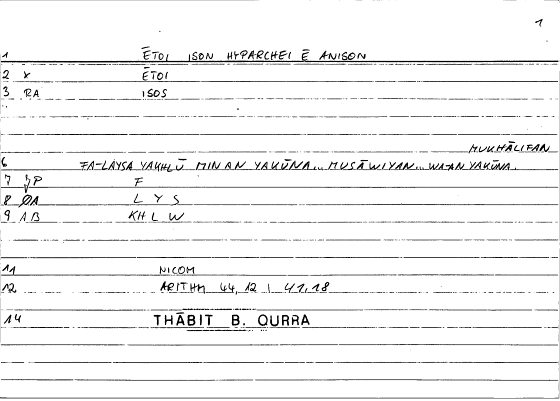 1
1 ĒTOI ISON HYPARCHEI Ē ANISON
2 ĒTOI
3 RA ISOS
MUKHĀLIFAN
6 FA-LAYSA YAKHLŪ MIN AN YAKŪNA... MUSĀWIYAN... WA-AN YAKŪNA.
7 F
8 L Y S
9 AB KH L W
11 NICOM
12 ARITHM 44, 12 | 41, 18
14 THĀBIT B. QURRA